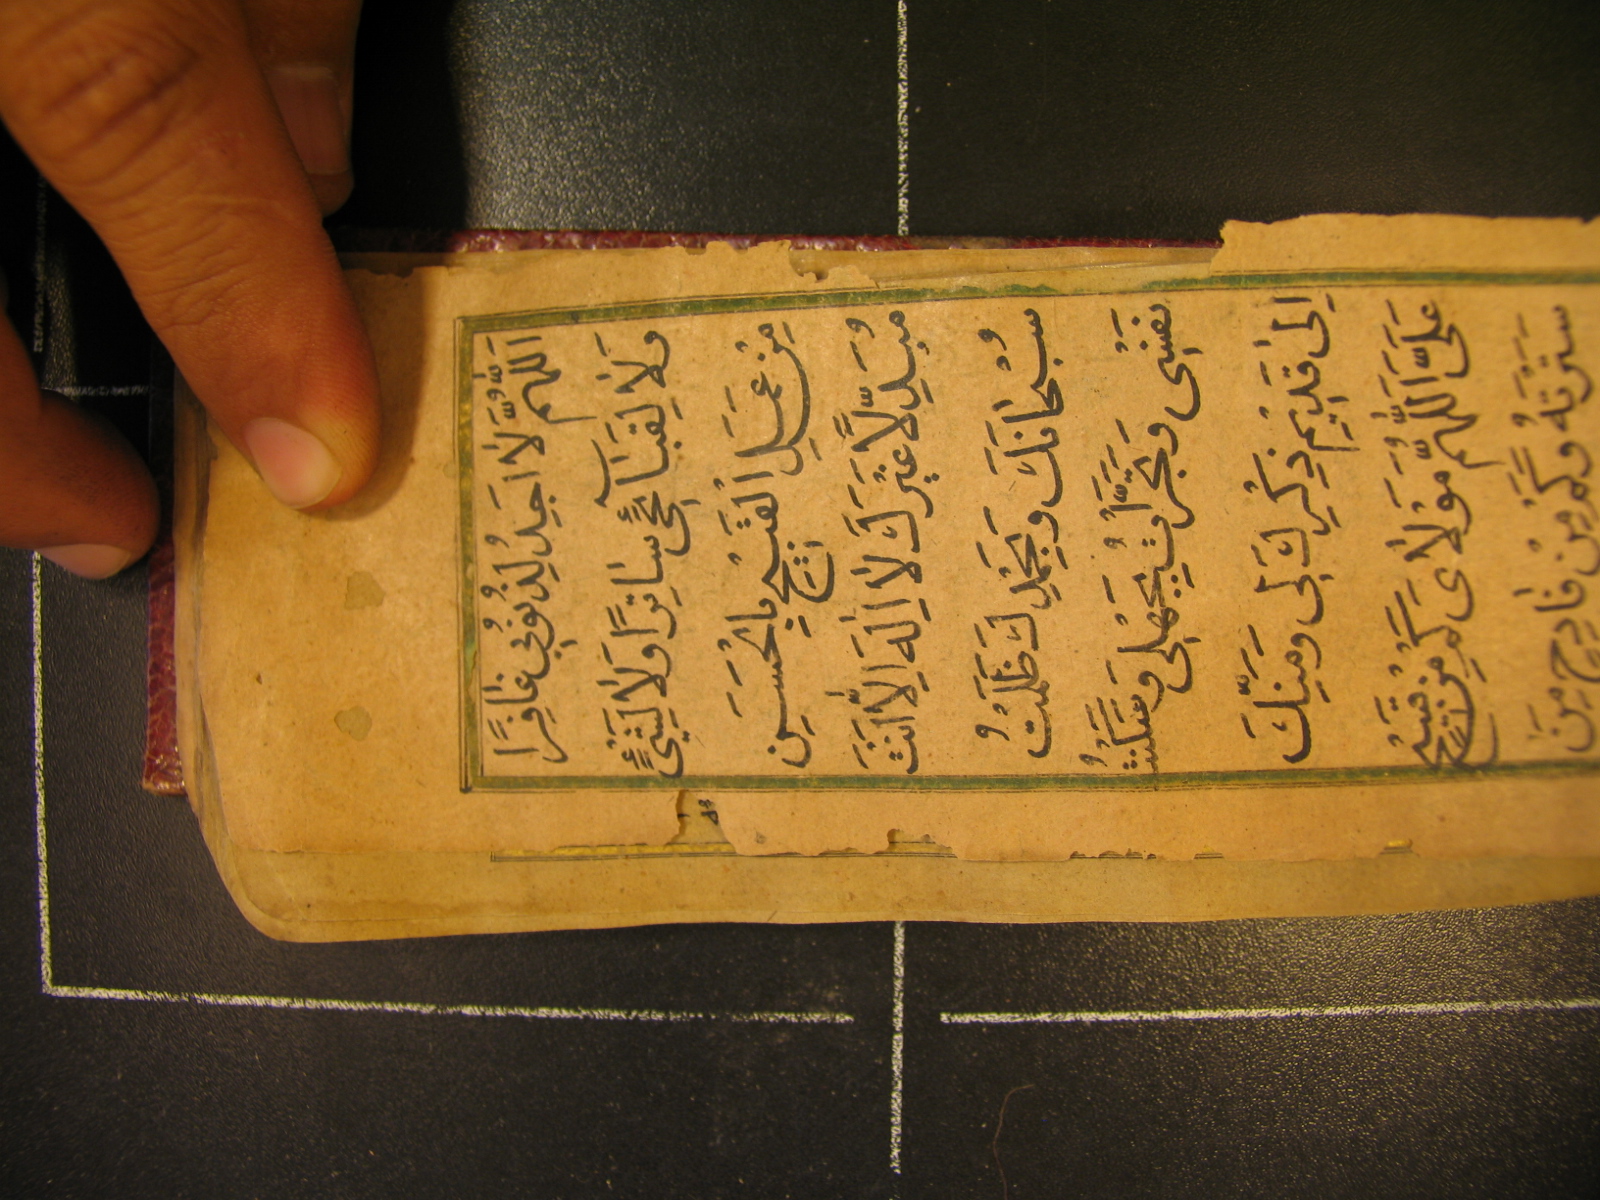 اَللّٰهُمَّ لَا اَجِدُ لِذُنُوبِی غَافِرًا
وَلَا لِقَبَائِحِی سَاتِرًا وَلَا لِشَیْءٍ
مِنْ عَمَلِیَ الْقَبِیْحِ بِالْحَسَنِ
مُبَدِّلًا غَیْرَكَ لَا اِلٰهَ اِلَّا اَنْتَ
سُبْحَانَكَ وَبِحَمْدِكَ ظَلَمْتُ
نَفْسِی وَتَجَرَّاْتُ بِجَهْلِی وَسَكَنْتُ
اِلٰی قَدِیْمِ ذِكْرِكَ لِی وَمَنِّكَ
عَلَیَّ اَللّٰهُمَّ مَوْلَایَ كَمْ مِنْ قَبِیْحٍ
سَتَرْتَهُ وَكَمْ مِنْ فَادِحٍ مِنَ